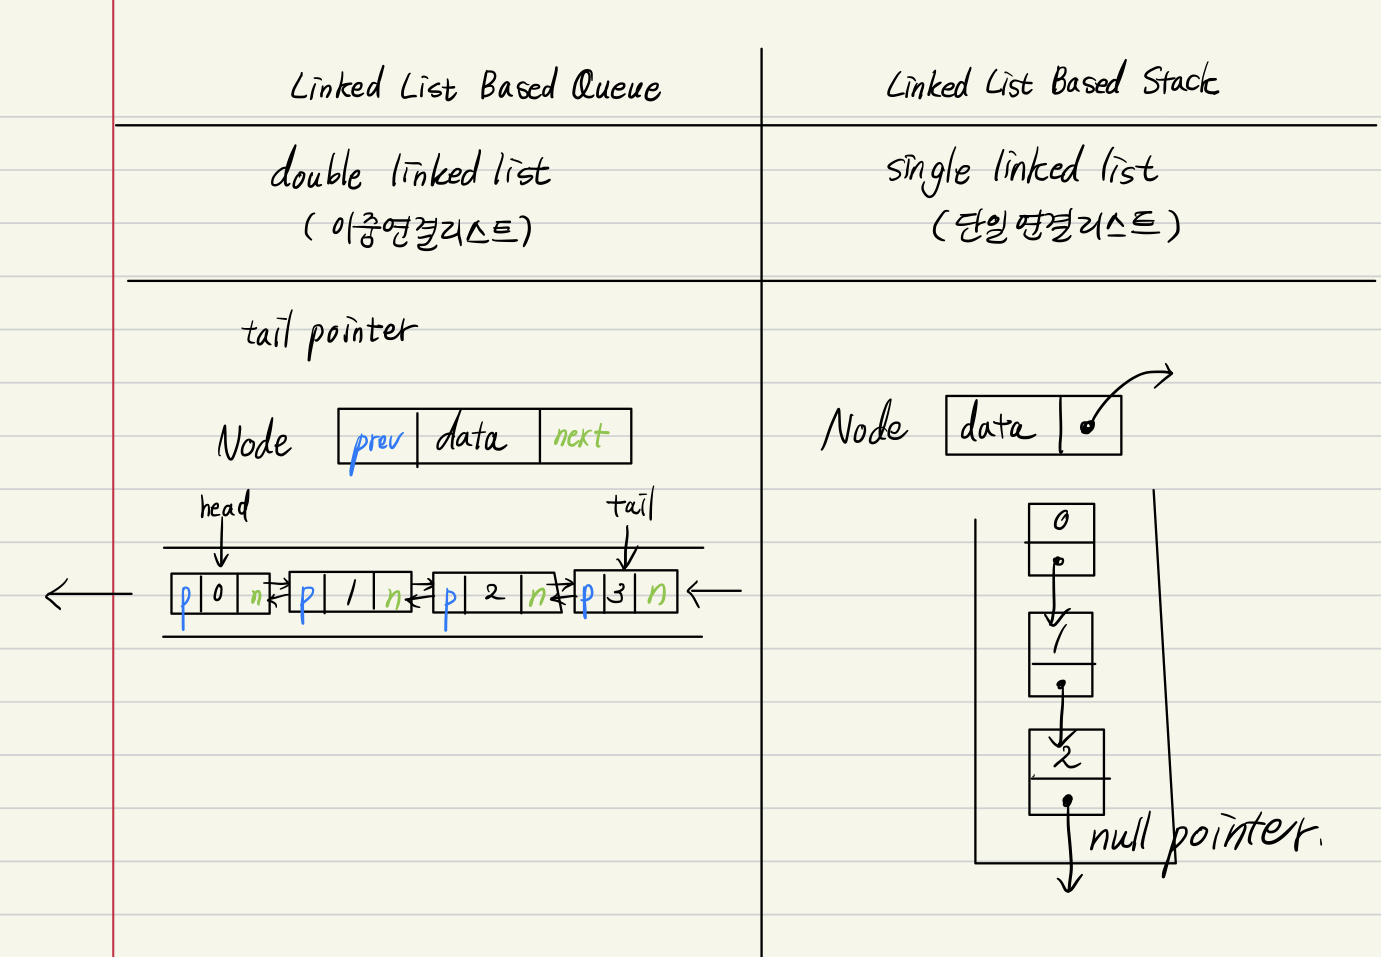 Linked List Based Queue
Linked List Based Stack
double linked list
(이중연결리스트)
single linked list
(단일연결리스트)
tail pointer
Node prev data next
head
tail
p 0 n p 1 n p 2 n p 3 n
Node data
0
1
2
null pointer.